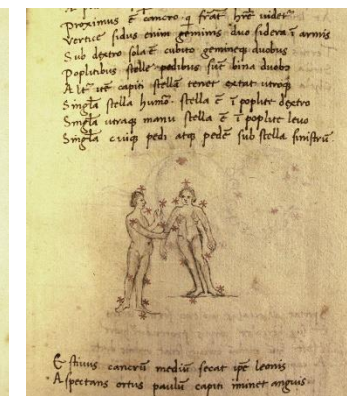 Proximus ē cancro q̄ frāt hr̄e videt᷑
Vertice sidus enim geminis duo sidera ī armis
Sub dextro sola ē cubito gemineq̨ duobus
Poplitibus stelle pedibus sūt bina duobꝰ
Alt᷑ itē capiti stellā tenet extat utroq̨
Singl̄a stella humo᷑ stella ē ī poplite dextro
Singl̄a utraq̨ manu stella ē ī poplite levo
Singl̄a cuiq̨ pedi atq̨ pedē sub stella sinistrū
Estivus cancrū mediū secat ip̄e leonis
Aspectans ortus paulū capiti iminet anguis